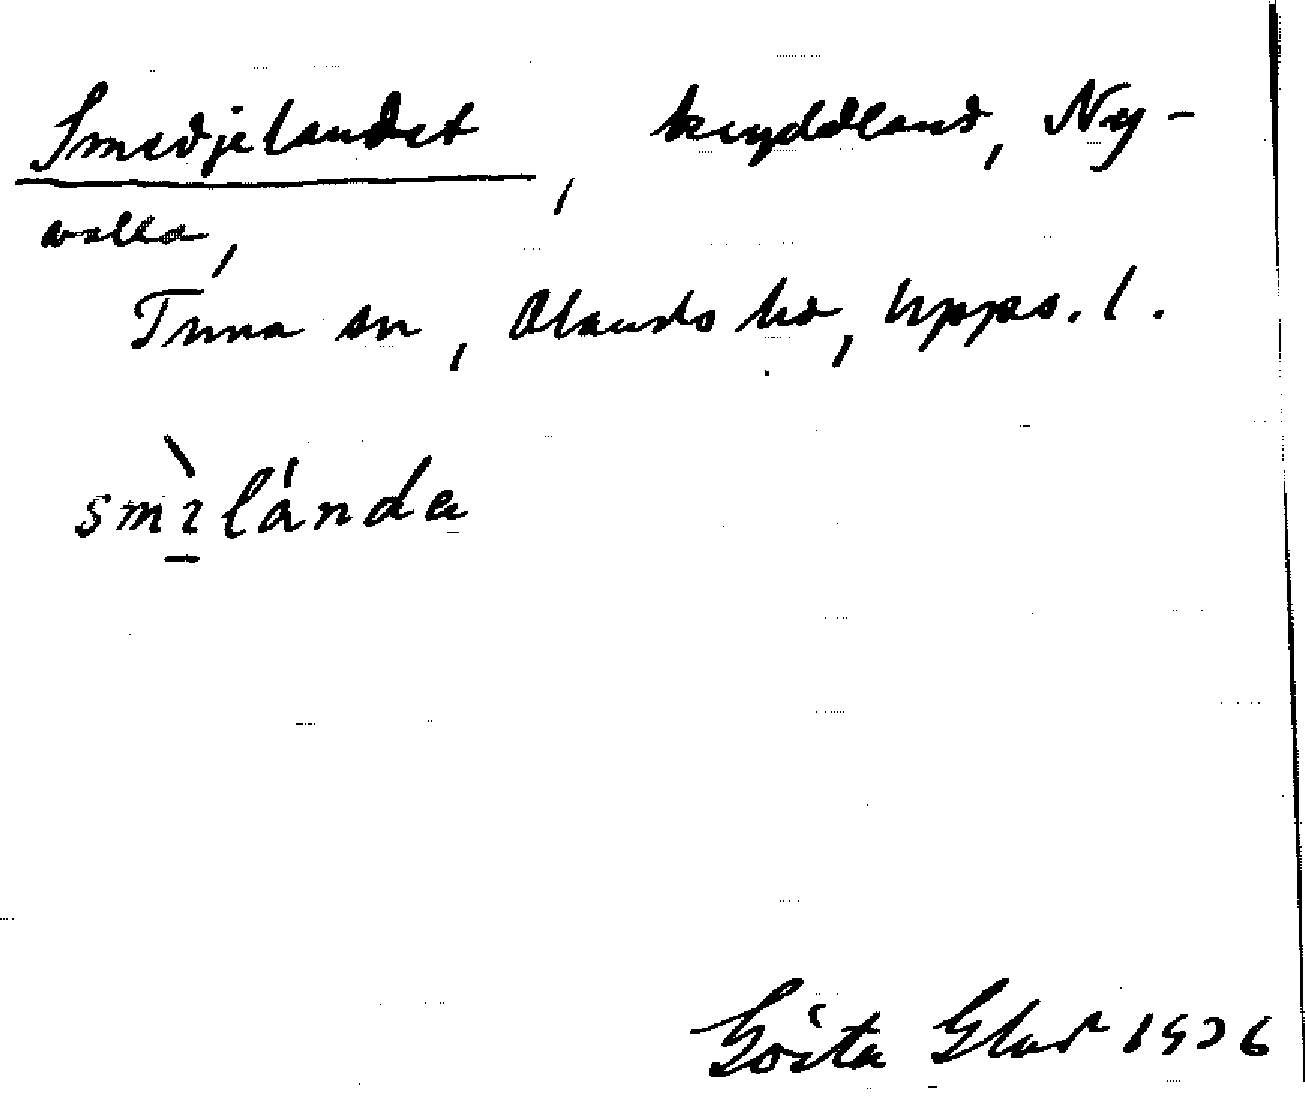 Smedjelandet, kryddland, Ny-
valla,
Tuna sn, Olands hd, Upps. l.
smìlánda
Gösta Glad 1936